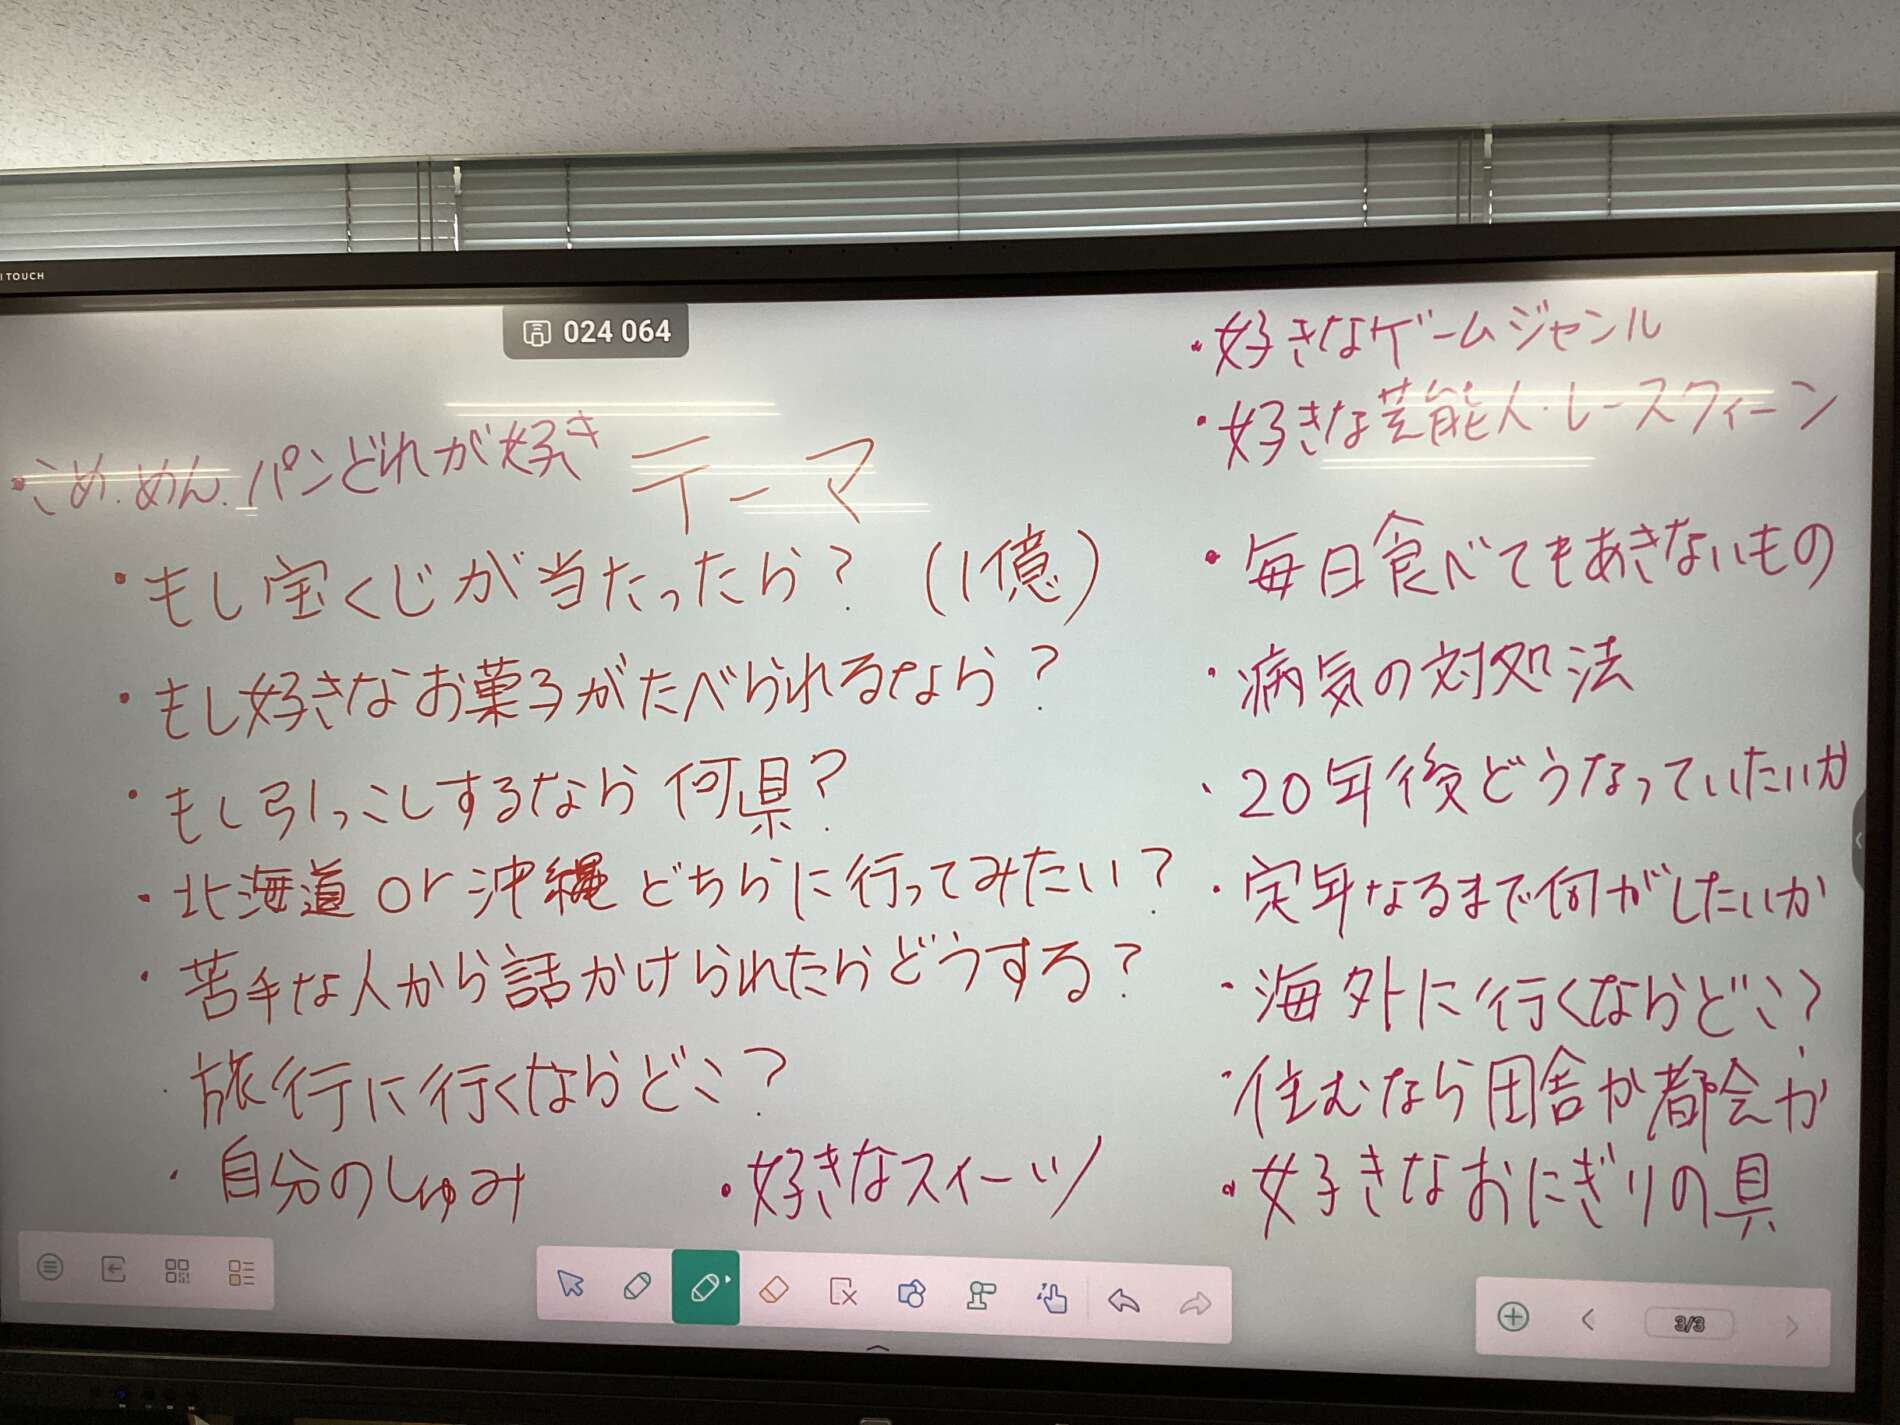 I TOUCH
024 064
テーマ
・こめ.めん.パンどれが好き
・もし宝くじが当たったら？（1億）
・もし好きなお菓子がたべられるなら？
・もし引っこしするなら何県？
・北海道or沖縄どちらに行ってみたい？
・苦手な人から話かけられたらどうする？
・旅行に行くならどこ？
・自分のしゅみ
・好きなスイーツ
・好きなゲームジャンル
・好きな芸能人・レースクィーン
・毎日食べてもあきないもの
・病気の対処法
・20年後どうなっていたいか
・定年なるまで何がしたいか
・海外に行くならどこ？
・住むなら田舎か都会か
・好きなおにぎりの具
3/3